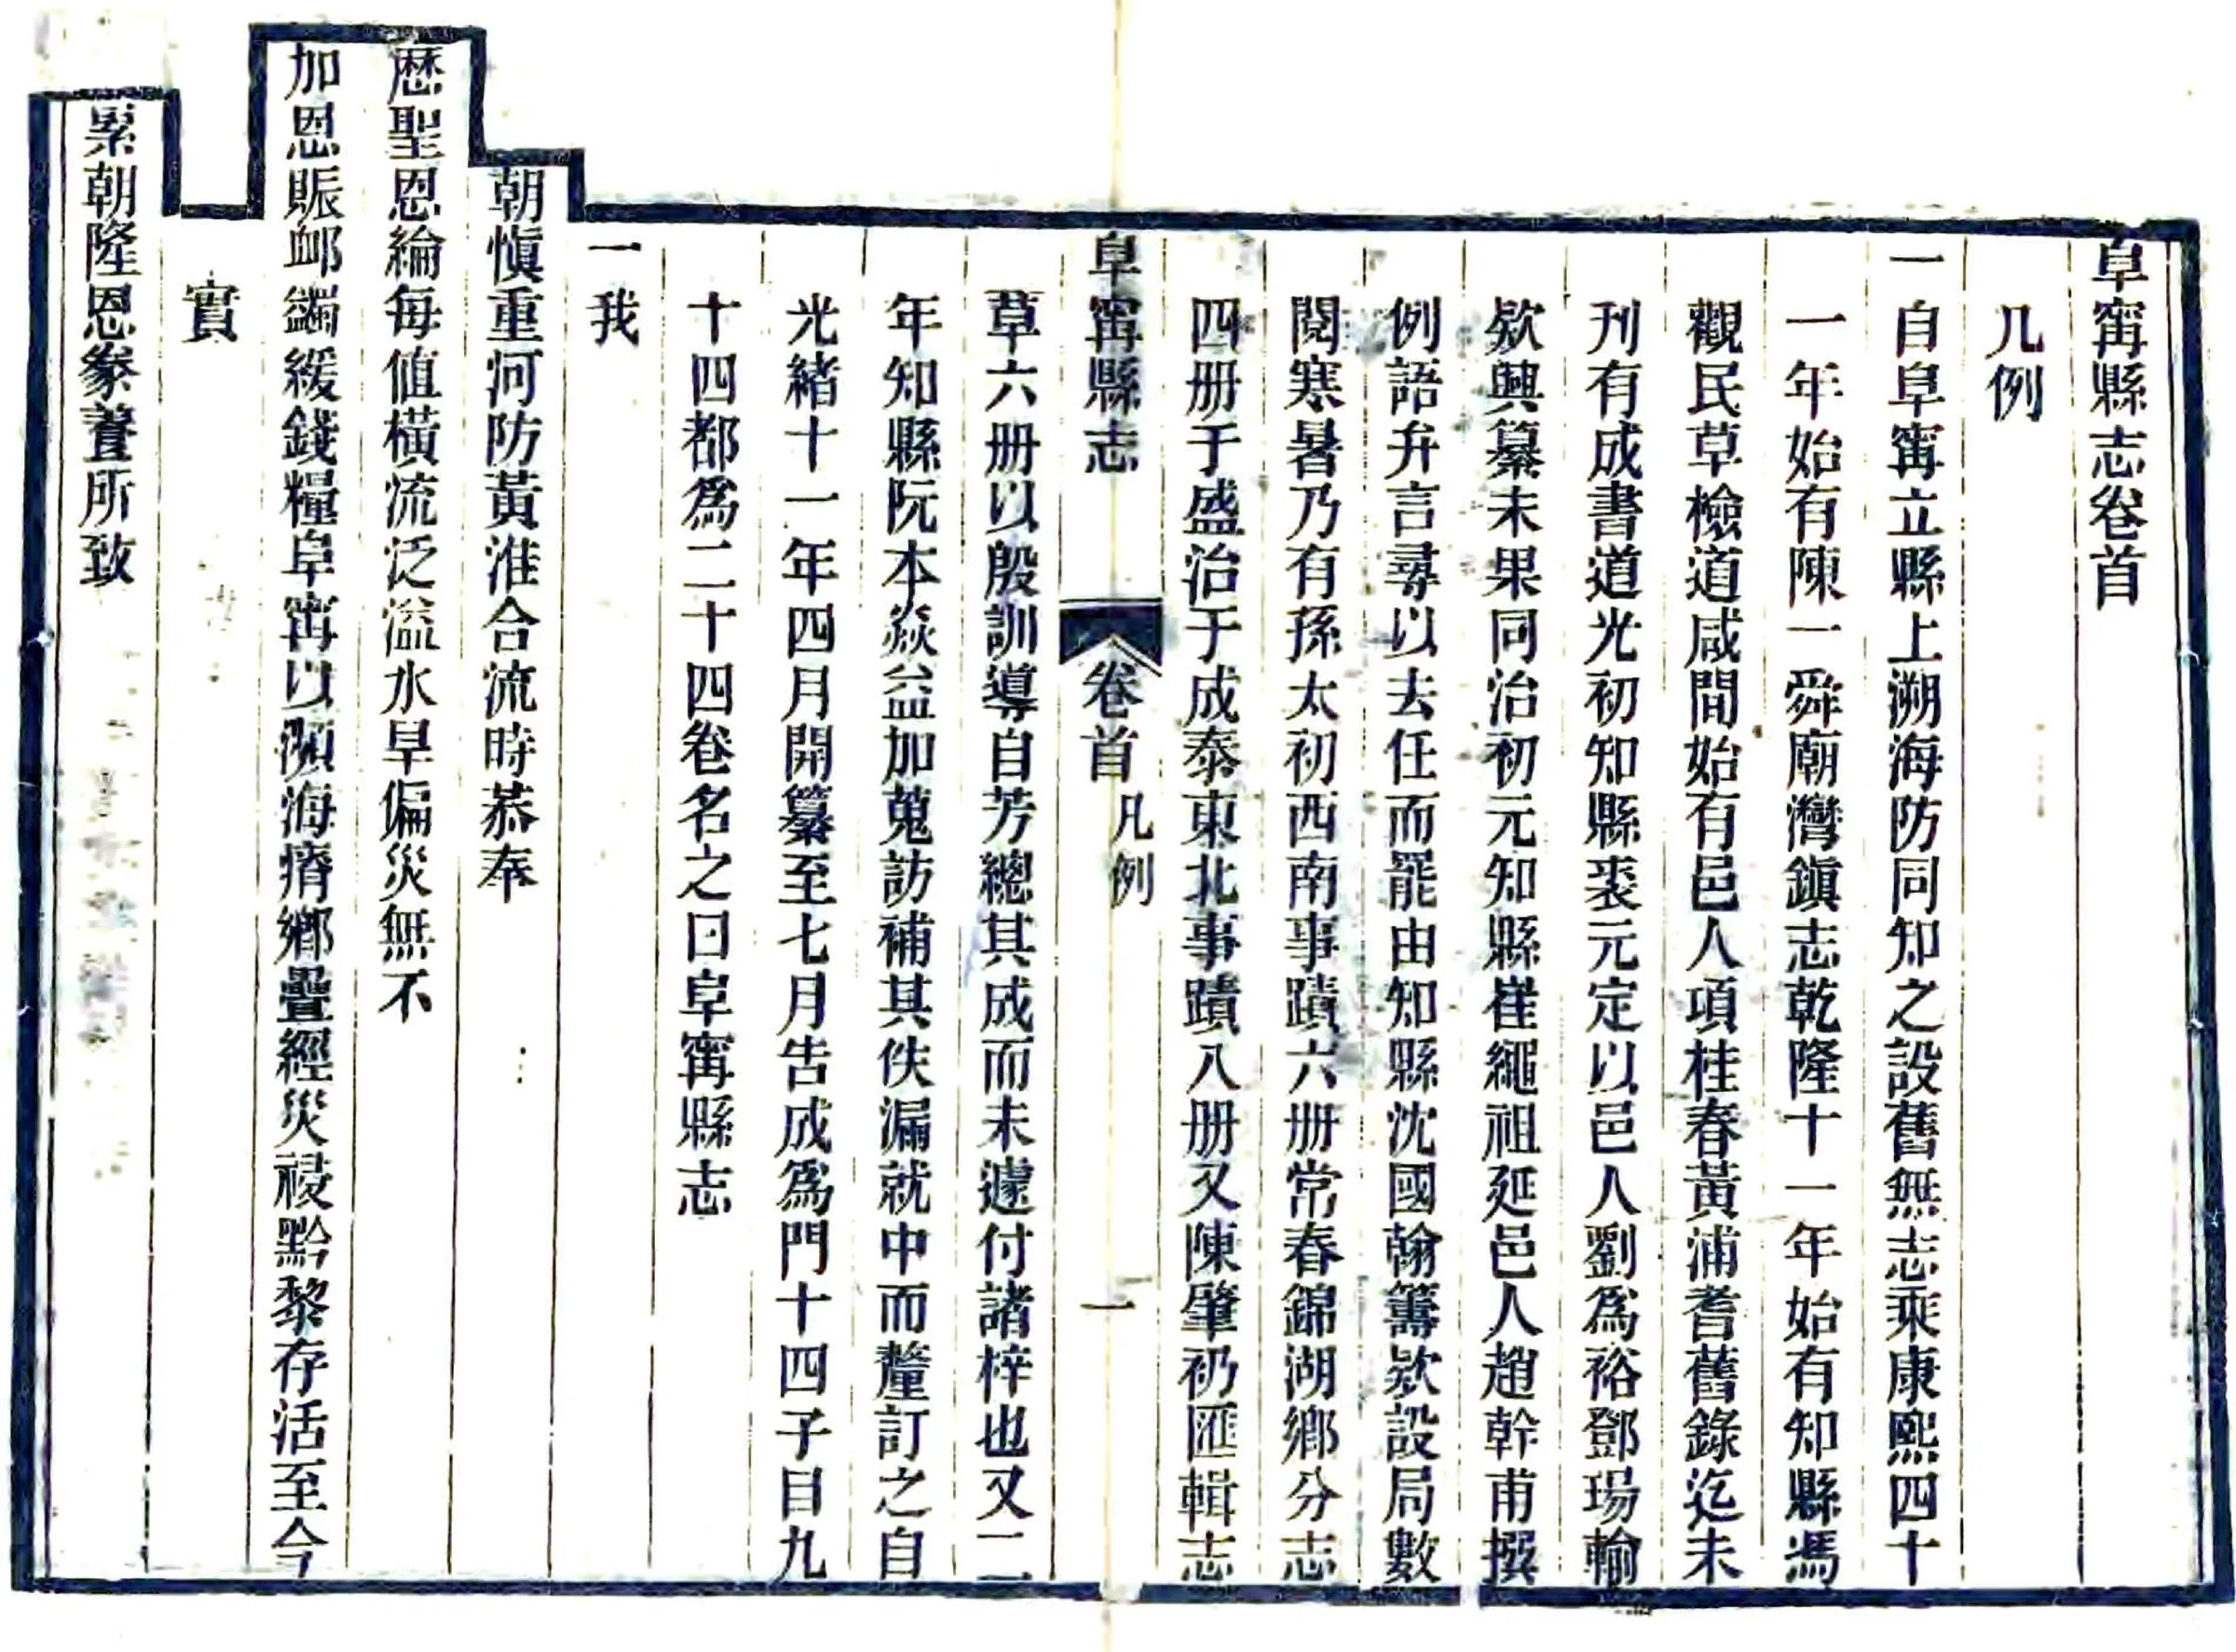 阜甯縣志卷首
凡例
一自阜甯立縣上溯海防同知之設舊無志乘康熙四十
一年始有陳一舜廟灣鎮志乾隆十一年始有知縣馮
觀民草檢道咸間始有邑人項桂春黃浦耆舊錄迄未
刊有成書道光初知縣裘元定以邑人劉爲裕鄧瑒輸
欵興纂未果同治初元知縣崔繩祖延邑人趙幹甫撰
例語弁言尋以去任而罷由知縣沈國翰籌欵設局數
閱寒暑乃有孫太初西南事蹟六册常春錦湖鄉分志
四册于盛治于成泰東北事蹟八册又陳肇礽匯輯志
阜甯縣志 卷首 凡例 一
草六册以殷訓導自芳總其成而未遽付諸梓也又二
年知縣阮本焱益加蒐訪補其佚漏就中而釐訂之自
光緒十一年四月開纂至七月告成爲門十四子目九
十四都爲二十四卷名之曰阜甯縣志
一我
朝愼重河防黃淮合流時恭奉
歷聖恩綸每值橫流泛溢水旱偏災無不
加恩賑䘏蠲緩錢糧阜甯以瀕海瘠鄉疊經災祲黔黎存活至今
實
累朝隆恩豢養所致